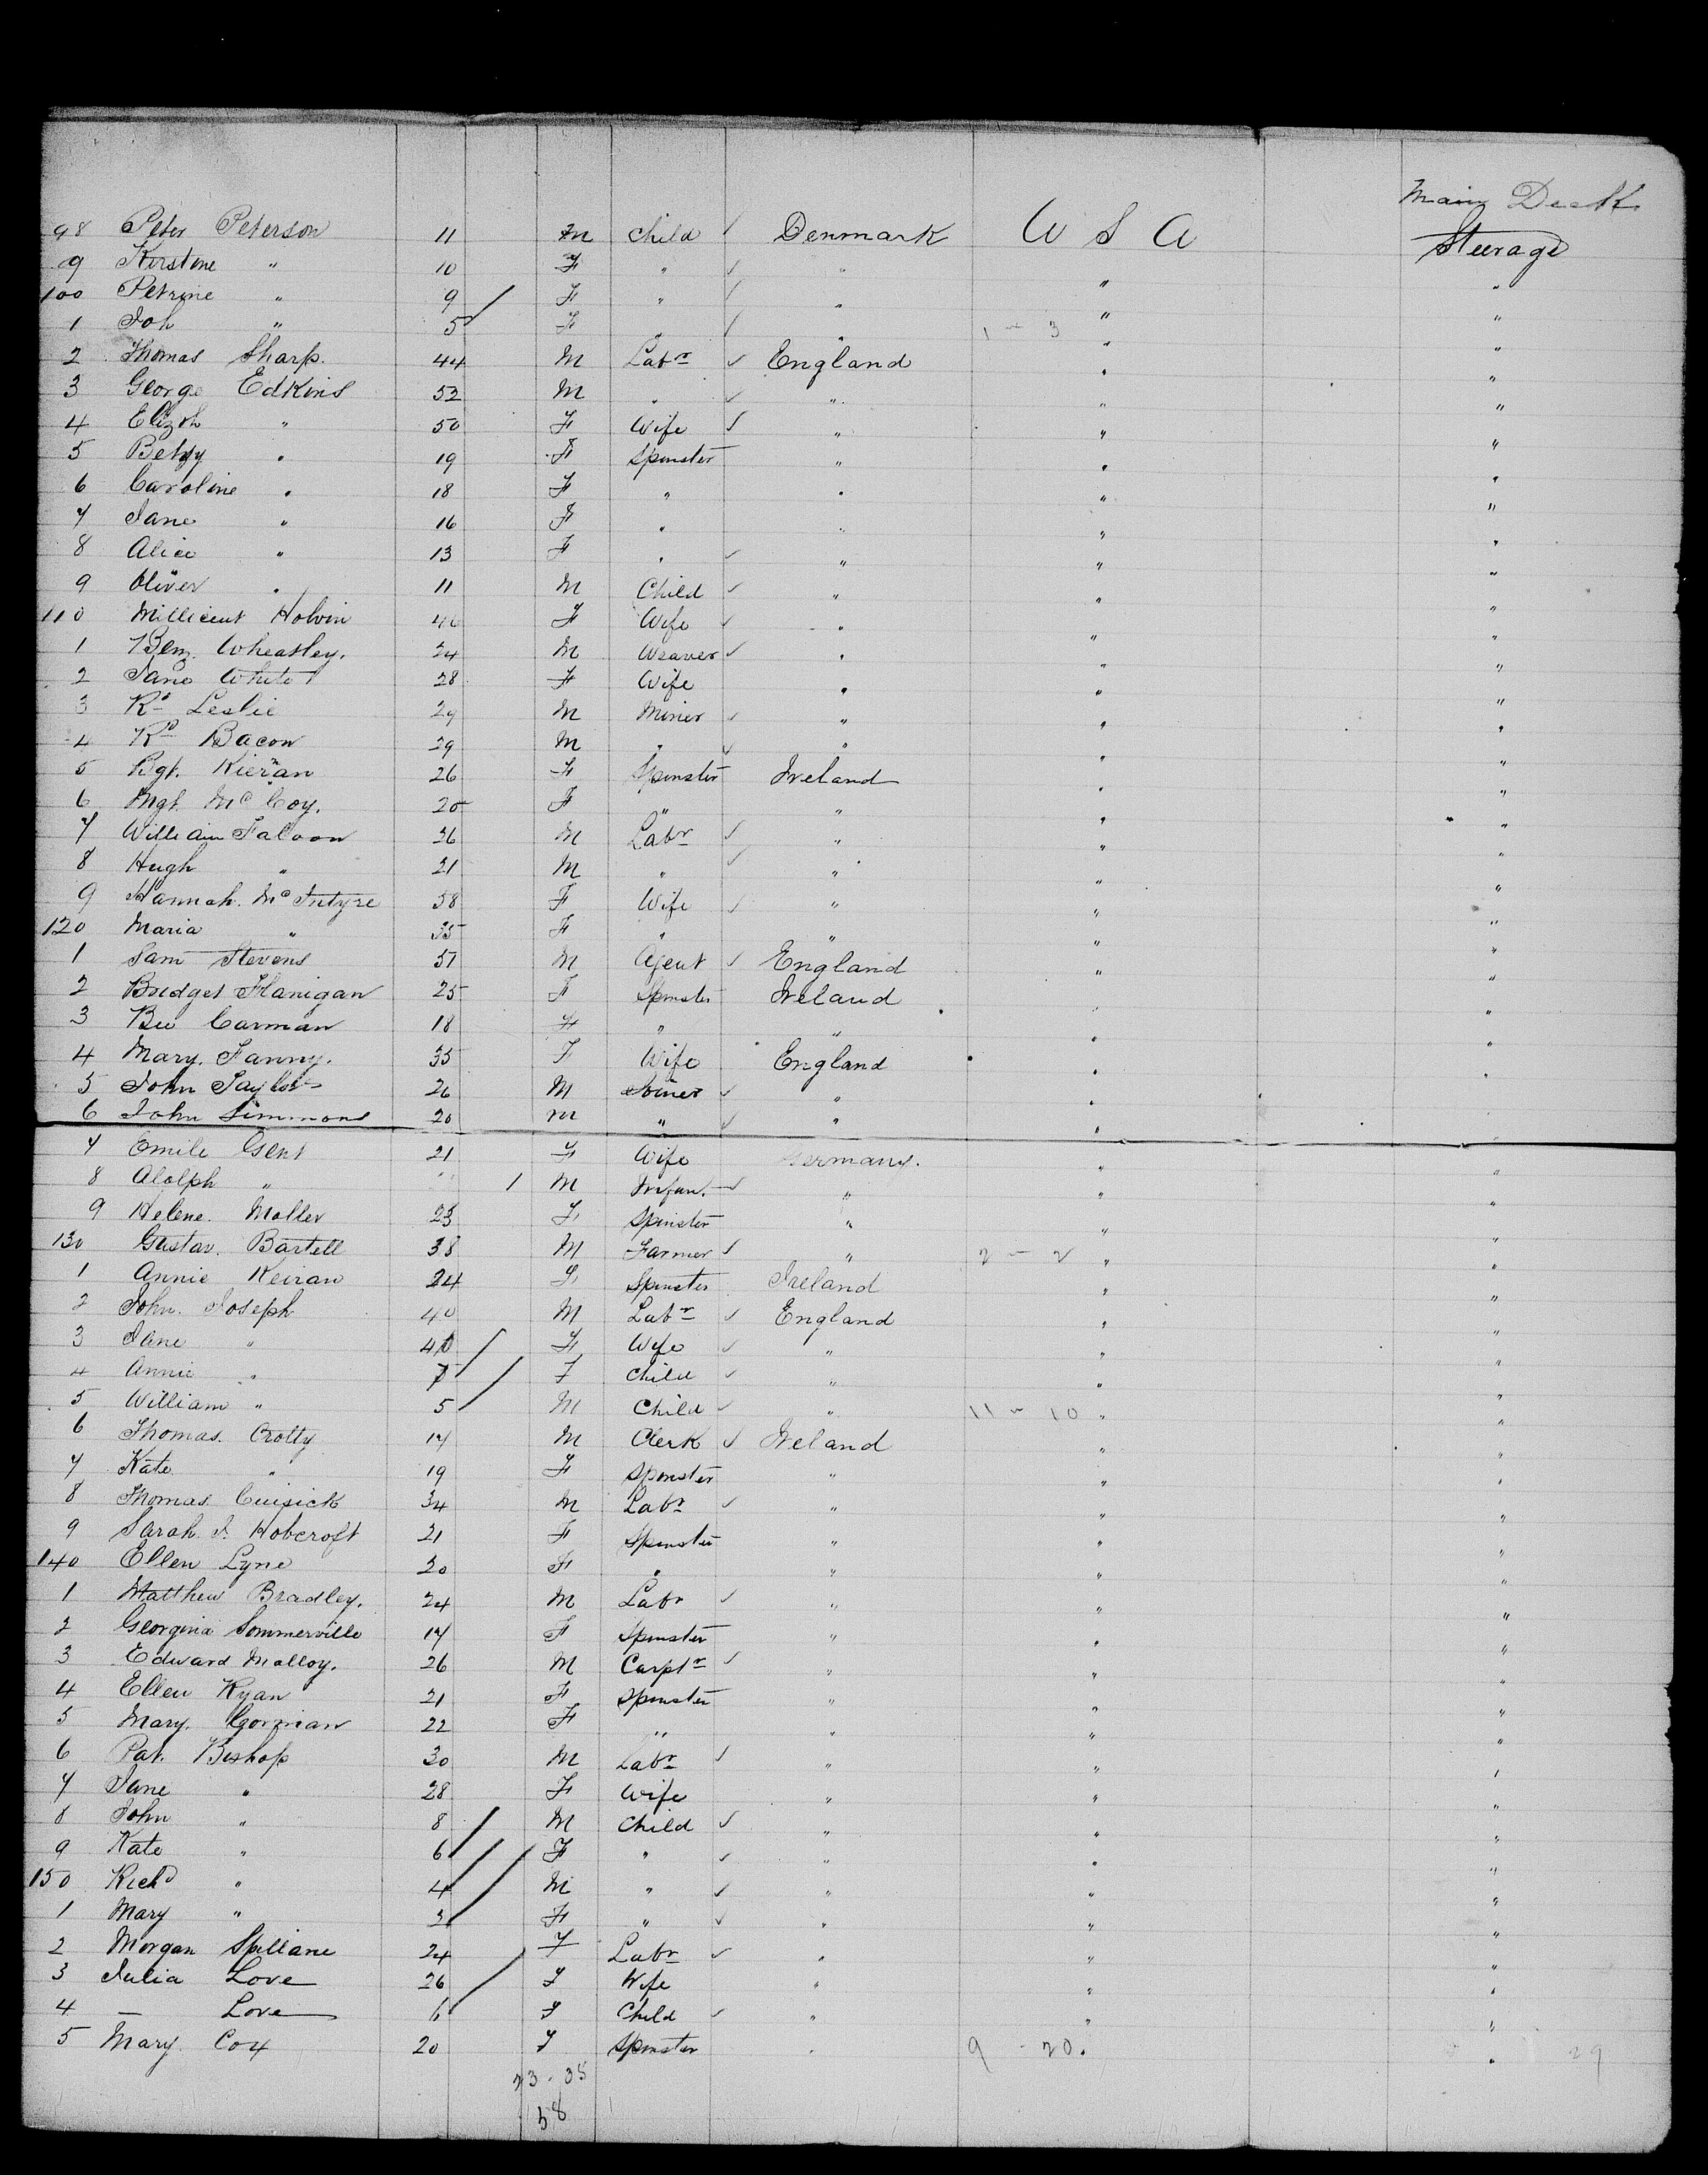 Main Deck
98 Peter Peterson 11 M Child Denmark U S A Steerage
9 Kirstine " 10 F " " " "
100 Petrine " 9 F " " " "
1 Joh " 5 F " " 1 - 3 " "
2 Thomas Sharp. 44 M Labr England " "
3 George Edkins 52 M " " " "
4 Elizth " 50 F Wife " " "
5 Betsy " 19 F Spinster " " "
6 Caroline " 18 F " " " "
7 Jane " 16 F " " " "
8 Alice " 13 F " " " "
9 Oliver " 11 M Child " " "
110 Millicent Holvin 46 F Wife " " "
1 Benj. Wheatley. 24 M Weaver " " "
2 Jane White 28 F Wife " " "
3 Rd Leslie 29 M Miner " " "
4 Rd Bacon 29 M " " " "
5 Bgt. Kieran 26 F Spinster Ireland " "
6 Mgt McCoy. 20 F " " " "
7 William Faloon 26 M Labr " " "
8 Hugh " 21 M " " " "
9 Hannah McIntyre 58 F Wife " " "
120 Maria " 35 F " " " "
1 Sam Stevens 37 M Agent England " "
2 Bridget Flanigan 25 F Spinster Ireland " "
3 Carman 18 F " " " "
4 Mary. Fanny. 35 F Wife England " "
5 John Taylor 26 M Joiner " " "
6 John Simmons 20 M " " " "
7 Emile Gent 21 F Wife Germany. " "
8 Alolph " 1 M Infan. " " "
9 Helene. Moller 23 F Spinster " " "
130 Gustav. Bartell 38 M Farmer " 2 - 2 " "
1 Annie Keiran 24 F Spinster Ireland " "
2 John. Joseph 40 M Labr England " "
3 Jane " 40 F Wife " " "
4 Annie " 7 F Child " " "
5 William " 5 M Child " 11 - 10 " "
6 Thomas. Crotty 17 M Clerk Ireland " "
7 Kate " 19 F Spinster " " "
8 Thomas Cuisick 34 M Labr " " "
9 Sarah J. Hobcroft 21 F Spinster " " "
140 Ellen Lyne 20 F " " " "
1 Matthew Bradley. 24 M Labr " " "
2 Georgina Sommerville 17 F Spinster " " "
3 Edward Malloy. 26 M Carptr " " "
4 Ellen Ryan 21 F Spinster " " "
5 Mary. Gorman 22 F " " " "
6 Pat. Bishop 30 M Labr " " "
7 Jane " 28 F Wife " " "
8 John " 8 M Child " " "
9 Kate " 6 F " " " "
150 Richd " 4 M " " " "
1 Mary " 3 F " " " "
2 Morgan Spillane 24 F Labr " " "
3 Julia Love 26 F Wife " " "
4 — Love 6 F Child " " "
5 Mary Cox 20 F Spinster " 9 - 20 " " 29
23 - 35
58